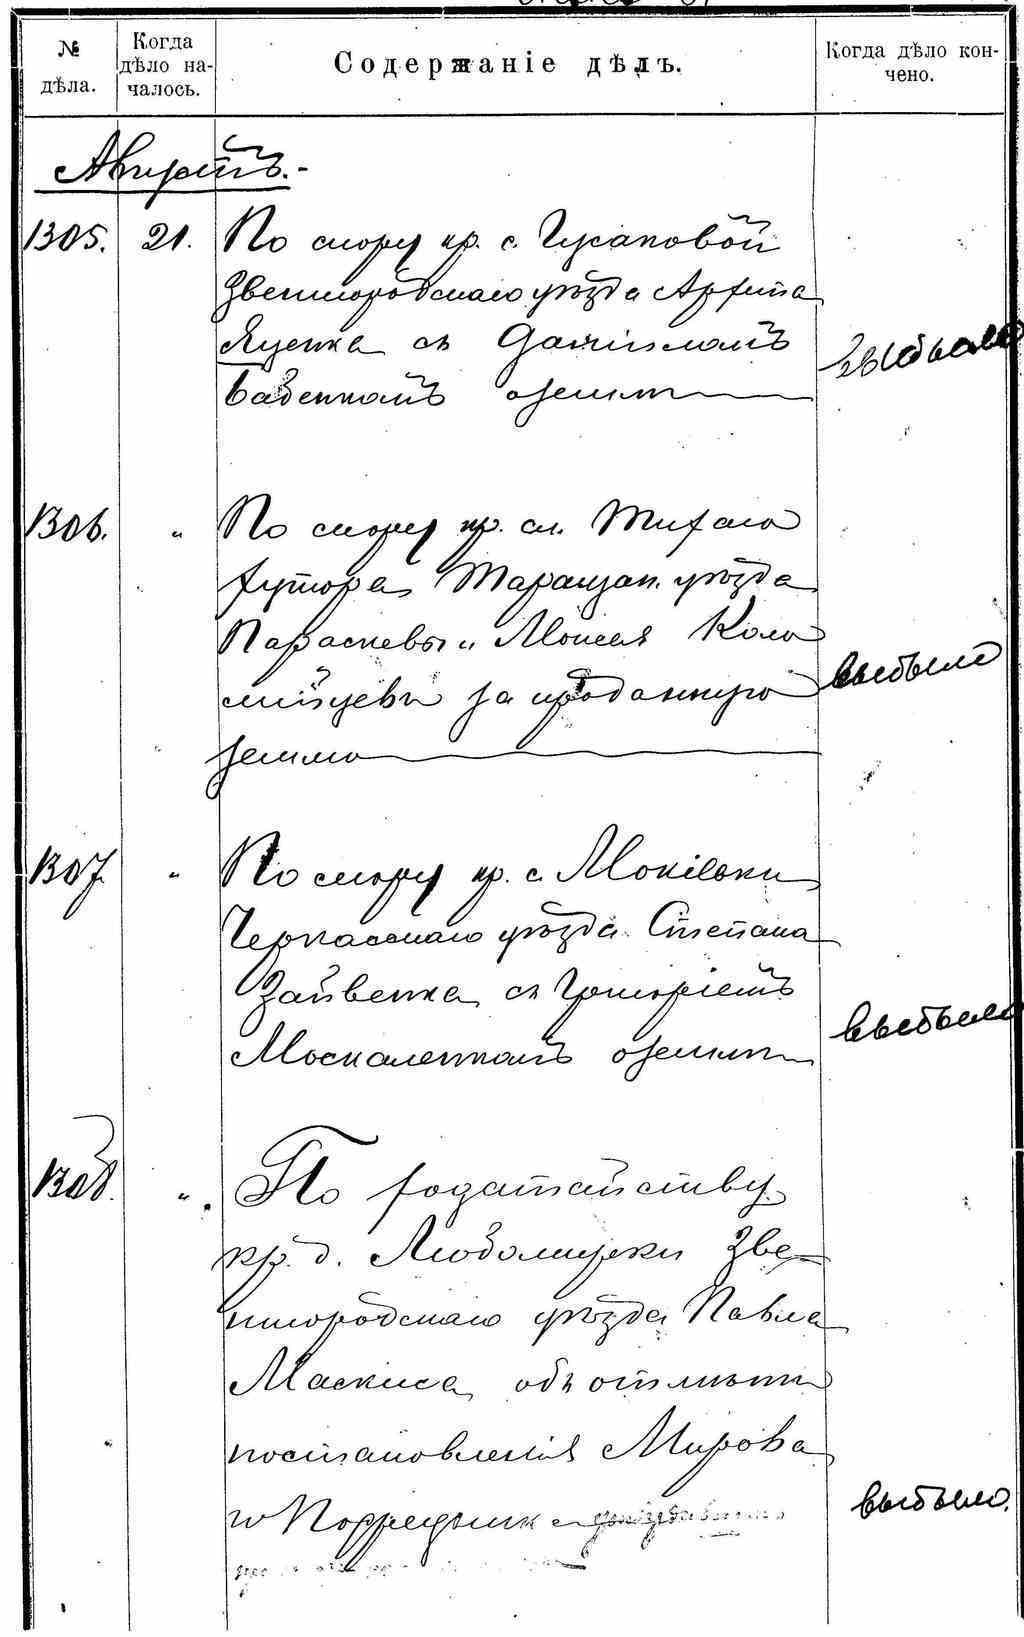 № дѣла.
Когда дѣло на-
чалось.
Содержаніе дѣлъ.
Когда дѣло кон-
чено.
Августъ.-
1305. 21. По спору кр. с. Гусаковой
Звенигородскаго уѣзда Архипа
Яценка съ Даніиломъ
Бабенкомъ о землѣ
выбыло
1306. " По спору кр. сл. Тихаго
хутора Таращан. уѣзда
Параскевы и Моисея Коло
мійцевы за проданную
землю
выбыло
1307. " По спору кр. с. Мокіевки
Черкасскаго уѣзда Степана
съ Григоріемъ
Москаленкомъ о землѣ
выбыло
1308. " По ходатайству
кр. д. Зве-
нигородскаго уѣзда Павла
объ отмѣнѣ
постановленія Мирова
го Посредника
выбыло.